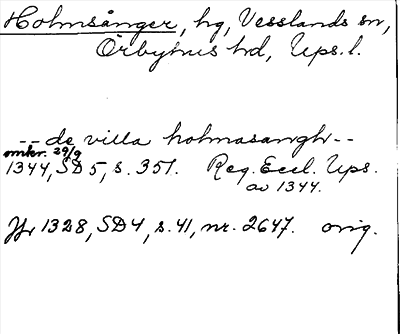 Holmsånger, hg, Vesslands sn,
Örbyhus hd, Ups. l.
-- de villa holmasangh --
omkr. 29/9
1344, SD 5, s. 351. Reg. Eccl. Ups.
av 1344.
Jfr 1328, SD 4, s. 41, nr. 2647. orig.